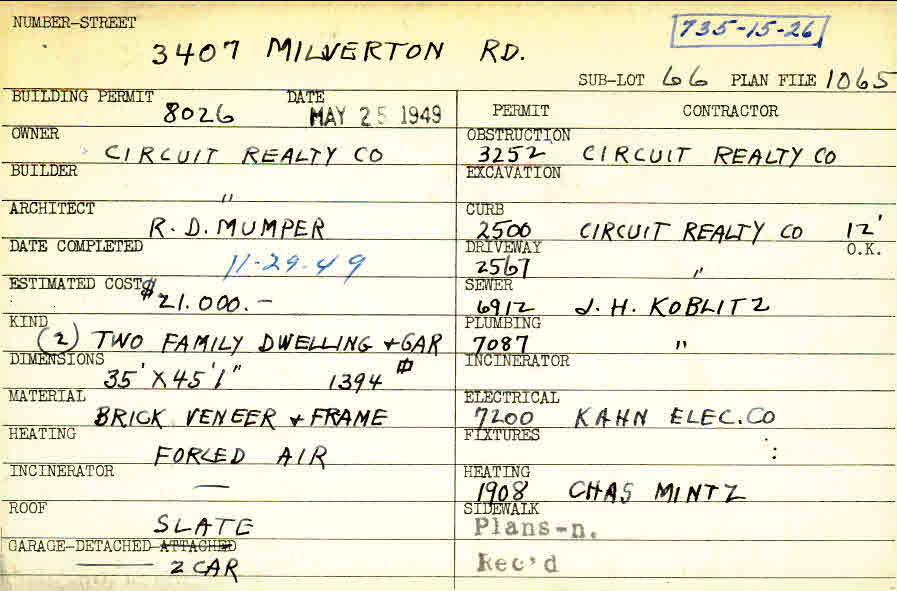 NUMBER-STREET
3407 MILVERTON RD.
735-15-26
SUB-LOT 66 PLAN FILE 1065
BUILDING PERMIT 8026 DATE MAY 25 1949
OWNER
CIRCUIT REALTY CO
BUILDER
"
ARCHITECT
R. D. MUMPER
DATE COMPLETED
11-29-49
ESTIMATED COST $21.000.-
KIND
(2) TWO FAMILY DWELLING + GAR
DIMENSIONS
35' X 45' 1" 1394
MATERIAL
BRICK VENEER + FRAME
HEATING
FORCED AIR
INCINERATOR
—
ROOF
SLATE
GARAGE-DETACHED-ATTACHED
2 CAR
PERMIT CONTRACTOR
OBSTRUCTION
3252 CIRCUIT REALTY CO
EXCAVATION
CURB
2500 CIRCUIT REALTY CO 12'
DRIVEWAY O.K.
2567 "
SEWER
6912 J. H. KOBLITZ
PLUMBING
7087 "
INCINERATOR
ELECTRICAL
7200 KAHN ELEC. CO
FIXTURES
:
HEATING
1908 CHAS MINTZ
SIDEWALK
Plans-n.
Rec'd